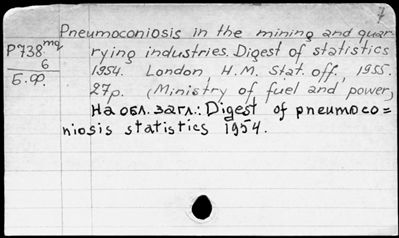 7
Pneumoconiosis in the mining and quar-
P738mq rying industries. Digest of statistics
6 1954. London, H.M. Stat. off., 1955.
Б.Ф. 27p. (Ministry of fuel and power)
На обл. загл.: Digest of pneumoco=
niosis statistics 1954.